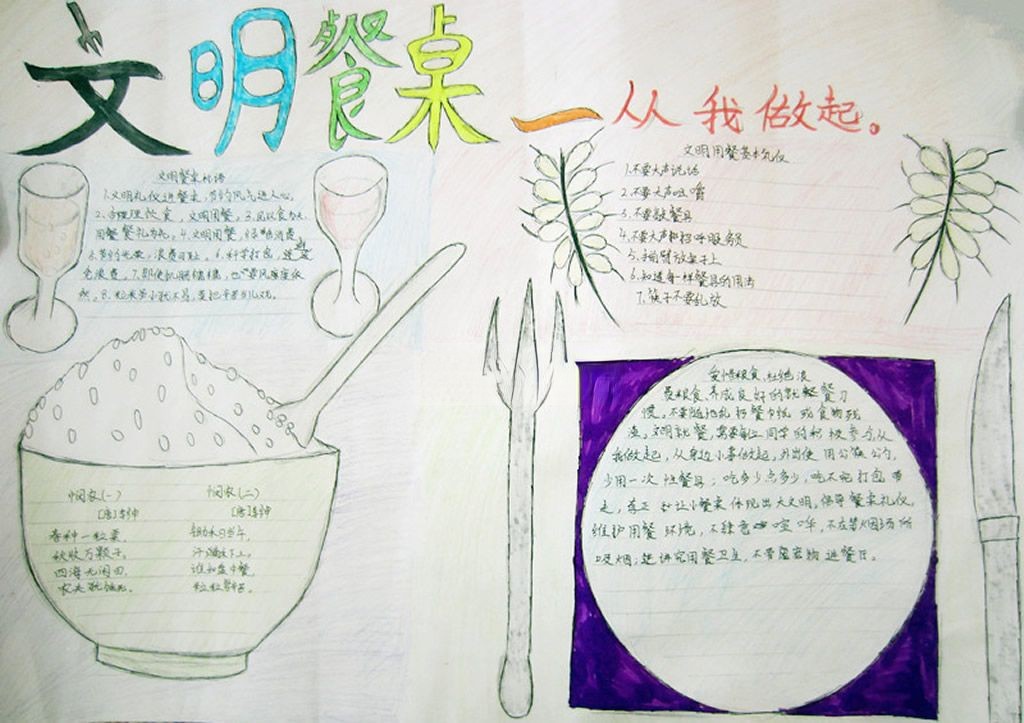 文明餐桌一从我做起。
文明餐桌标语
1.文明礼仪进餐桌,节约风气进人心。
2.合理饮食,文明用餐。3.民以食为天,
用餐礼为先。4.文明用餐,绿色消费
5.节约光荣,浪费可耻。6.科学打包,避
免浪费。
8.粒米虽小犹不易,莫把辛苦当儿戏。
文明用餐基本礼仪
1.不要大声说话
2.不要大声咀嚼
3.不要敲餐具
4.不要大声招呼服务员
5.手肘臂放桌子上
6.知道每样餐具的用法
7.筷子不要乱放
悯农(一)
[唐]李绅
春种一粒粟,
秋收万颗子。
四海无闲田,
农夫犹饿死。
悯农(二)
[唐]李绅
锄禾日当午,
汗滴禾下土。
谁知盘中餐,
粒粒皆辛苦。
爱惜粮食、杜绝浪
费粮食,养成良好的就餐习
惯。不要随地扔餐巾纸或食物残
渣。文明就餐,需要每位同学的积极参与,从
我做起,从身边小事做起,外出使用公筷公勺,
少用一次性餐具;吃多少点多少,吃不完打包带
走,真正让小餐桌体现出大文明,倡导餐桌礼仪,
维护用餐环境,不肆意喧哗,不在禁烟场所
吸烟;讲究用餐卫生,不带宠物进餐厅。